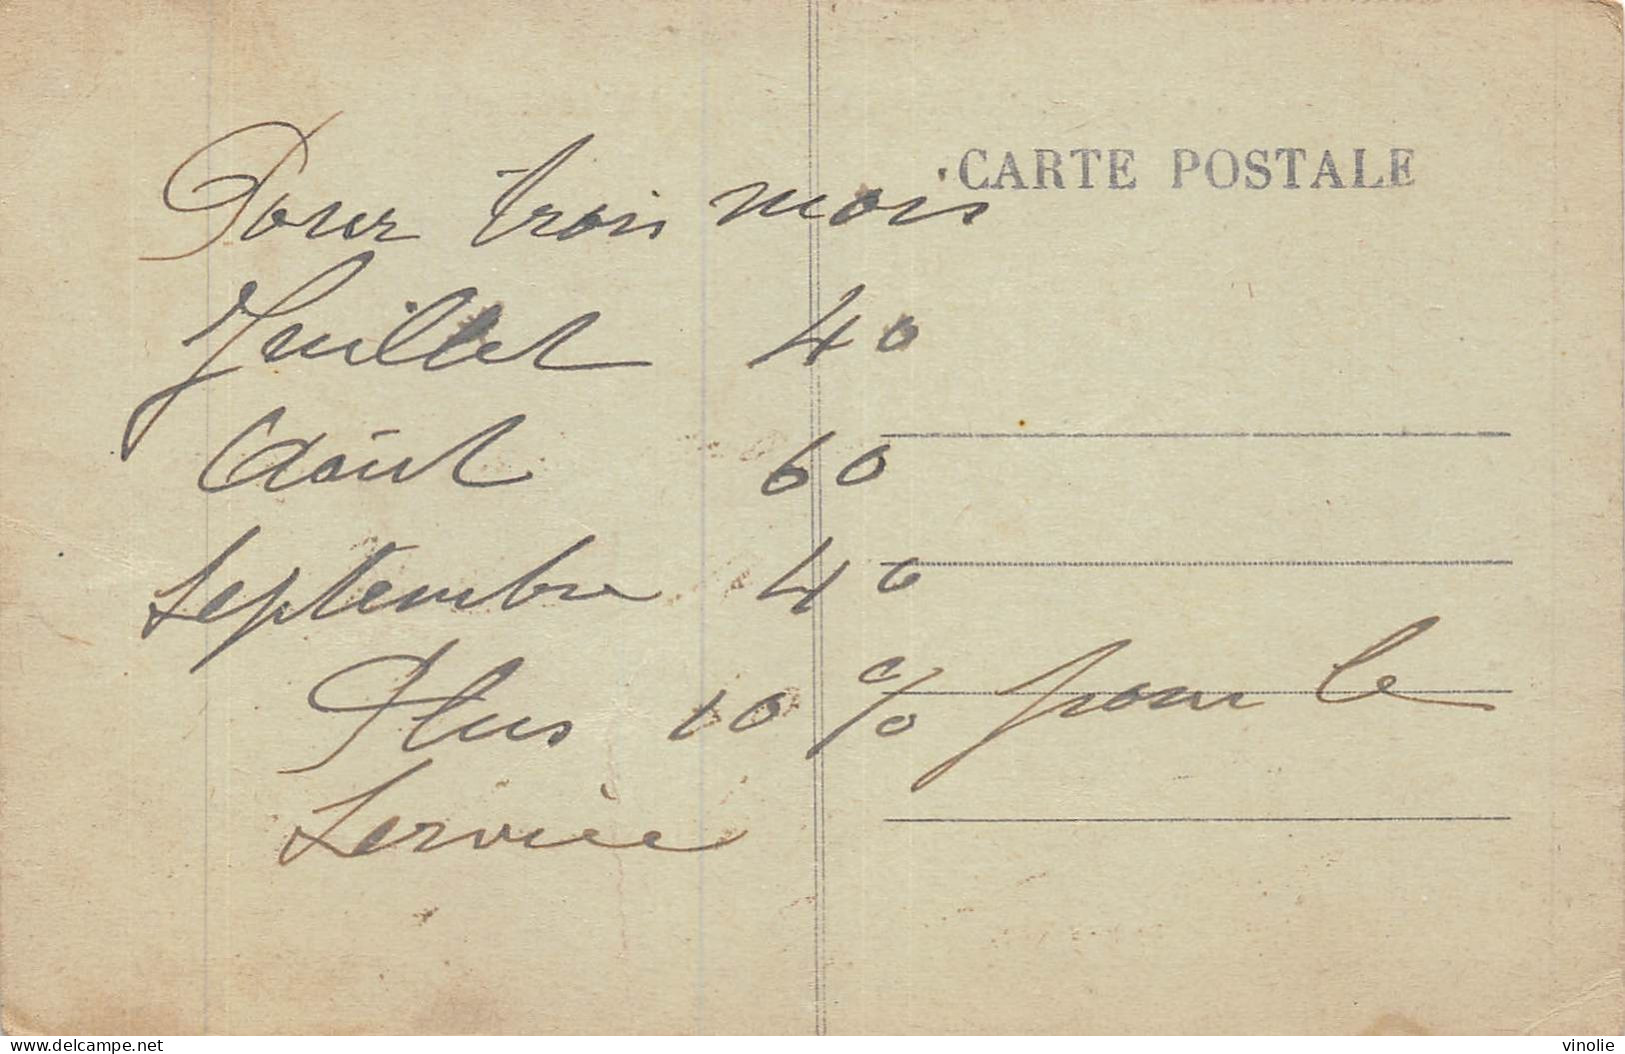 CARTE POSTALE
Pour trois mois
Juillet 40
Août 60
Septembre 40
Plus 10 % pour le
Service
delcampe.net
vinolie